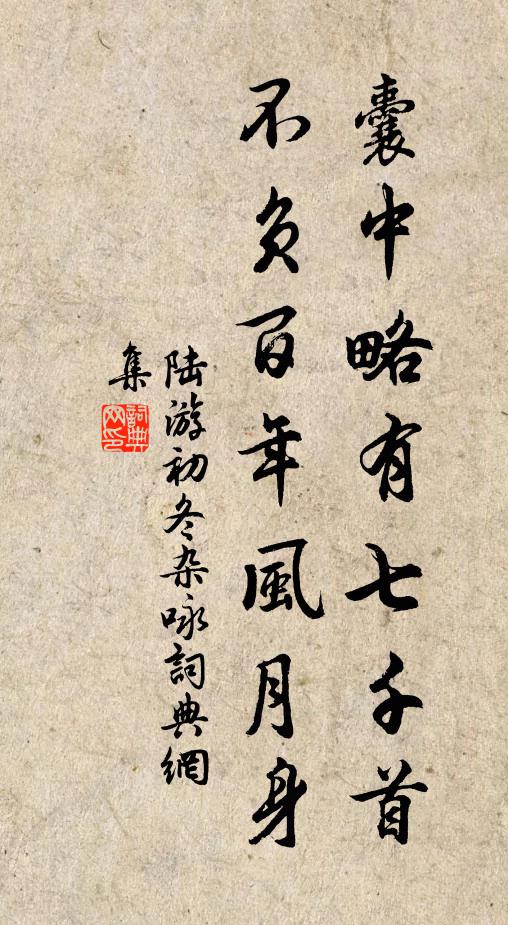 囊中略有七千首
不負百年風月身
陆游初冬杂咏詞典網
集
詞典網印